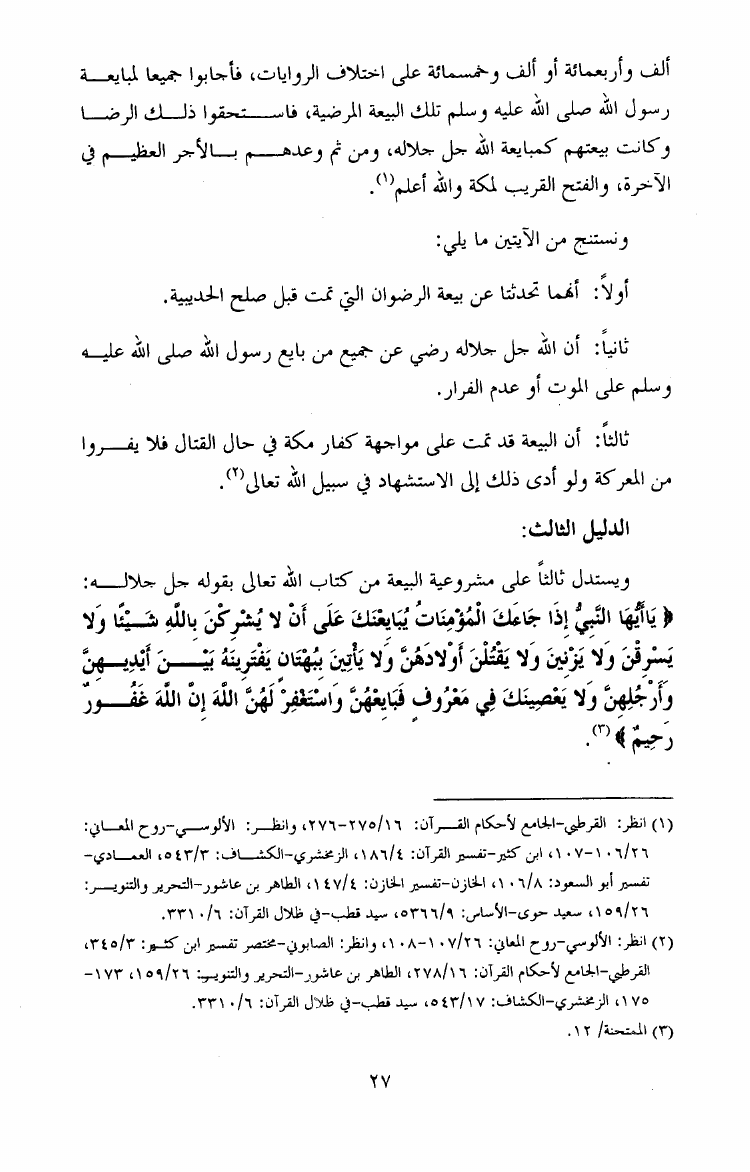 ألف وأربعمائة أو ألف وخمسمائة على اختلاف الروايات، فأجابوا جميعا لمبايعة
رسول الله صلى الله عليه وسلم تلك البيعة المرضية، فاستحقوا ذلك الرضا
وكانت بيعتهم كمبايعة الله جل جلاله، ومن ثم وعدهم بالأجر العظيم في
الآخرة، والفتح القريب لمكة والله أعلم(١).
ونستنج من الآيتين ما يلي:
أولاً: أنهما تحدثتا عن بيعة الرضوان التي تمت قبل صلح الحديبية.
ثانياً: أن الله جل جلاله رضي عن جميع من بايع رسول الله صلى الله عليه
وسلم على الموت أو عدم الفرار.
ثالثاً: أن البيعة قد تمت على مواجهة كفار مكة في حال القتال فلا يفروا
من المعركة ولو أدى ذلك إلى الاستشهاد في سبيل الله تعالى(٢).
الدليل الثالث:
ويستدل ثالثاً على مشروعية البيعة من كتاب الله تعالى بقوله جل جلاله:
﴿ يَاأَيُّهَا النَّبِيُّ إِذَا جَاءَكَ الْمُؤْمِنَاتُ يُبَايِعْنَكَ عَلَى أَنْ لا يُشْرِكْنَ بِاللَّهِ شَيْئًا وَلا
يَسْرِقْنَ وَلا يَزْنِينَ وَلا يَقْتُلْنَ أَوْلادَهُنَّ وَلا يَأْتِينَ بِبُهْتَانٍ يَفْتَرِينَهُ بَيْنَ أَيْدِيهِنَّ
وَأَرْجُلِهِنَّ وَلا يَعْصِينَكَ فِي مَعْرُوفٍ فَبَايِعْهُنَّ وَاسْتَغْفِرْ لَهُنَّ اللَّهَ إِنَّ اللَّهَ غَفُورٌ
رَحِيمٌ ﴾(٣).
(١) انظر: القرطبي-الجامع لأحكام القرآن: ٢٧٥/١٦-٢٧٦، وانظر: الألوسي-روح المعاني:
١٠٦/٢٦-١٠٧، ابن كثير-تفسير القرآن: ١٨٦/٤، الزمخشري-الكشاف: ٥٤٣/٣، العمادي-
تفسير أبو السعود: ١٠٦/٨، الخازن-تفسير الخازن: ١٤٧/٤، الطاهر بن عاشور-التحرير والتنوير:
١٥٩/٢٦، سعيد حوى-الأساس: ٥٣٦٦/٩، سيد قطب-في ظلال القرآن: ٣٣١٠/٦.
(٢) انظر: الألوسي-روح المعاني: ١٠٧/٢٦-١٠٨، وانظر: الصابوني-مختصر تفسير ابن كثير: ٣٤٥/٣،
القرطبي-الجامع لأحكام القرآن: ٢٧٨/١٦، الطاهر بن عاشور-التحرير والتنوير: ١٥٩/٢٦، ١٧٣-
١٧٥، الزمخشري-الكشاف: ٥٤٣/١٧، سيد قطب-في ظلال القرآن: ٣٣١٠/٦.
(٣) الممتحنة/ ١٢.
٢٧